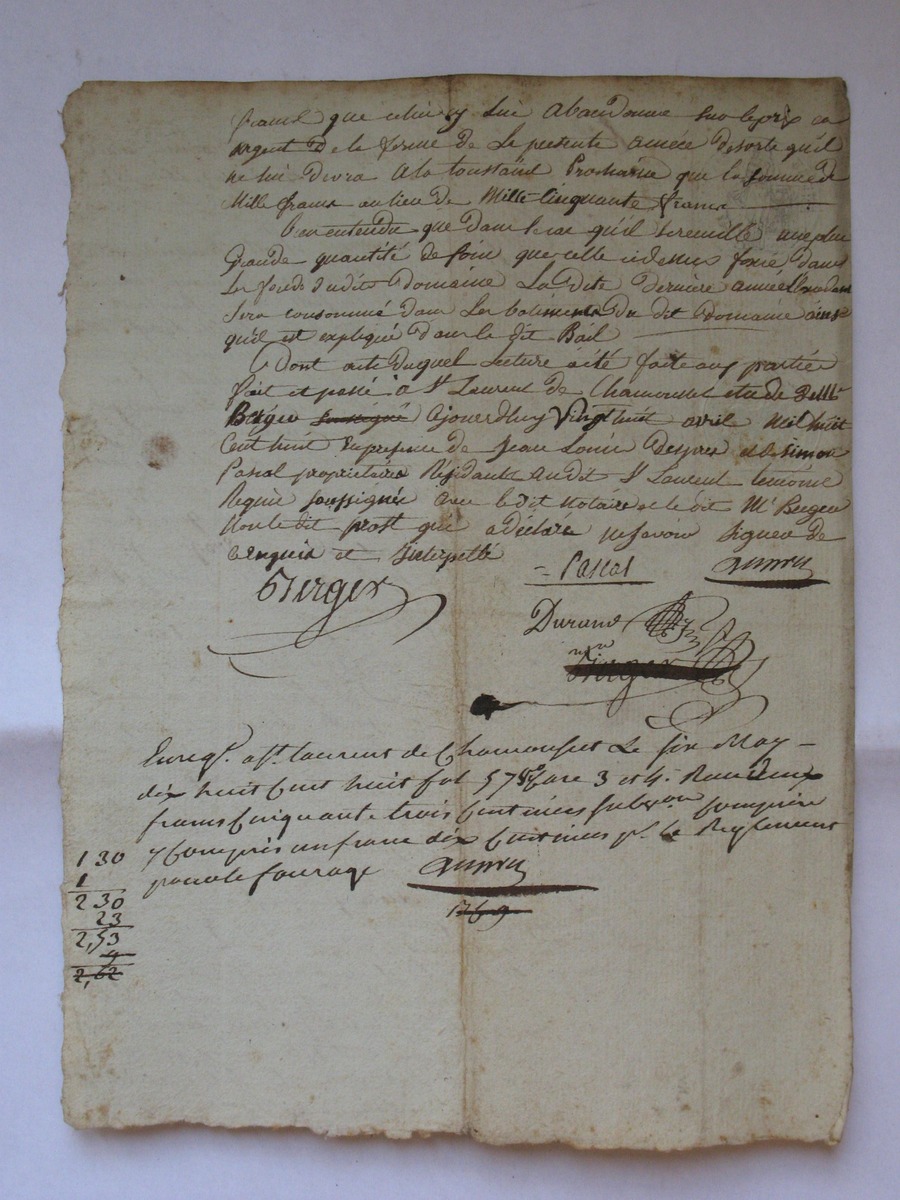 francs que celui cy lui abandonne sur le prix en
argent de la ferme de La presente année desorte qu'il
ne lui Devra a la toussaint Prochaine que la somme de
Mille francs au lieu de Mille Cinquante francs
bien entendu que dans le cas qu'il recueille une plus
Grande quantité de foin que celle cy dessus fixée dans
Les fonds dudit Domaine La dite derniere année
sera consommé dans Les batiments du dit domaine ainsi
qu'il est expliqué dans le dit Bail
Dont acte duquel lecture a été faite aux parties
fait et passé a St Laurent de Chamousset etude de
Berger ajourdhuy Vingt huit avril Mil huit
Cent huit en presence de Jean Louis Despres et de Simon
Pascal proprietaires Residants audit St Laurent temoins
Requis soussignés avec le dit Notaire et le dit Mr Berger
Non le dit prost qui a déclaré ne savoir signer de
ce requis et Interpellé
= Pascal
Berger
Durand
Berger
Enregt. a St. Laurent de Chamousset Le six May
dix huit Cent huit fol 57 Vo Case 3 et 4. Reçu deux
francs Cinquante trois Centimes subvon Comprise
y Compris un franc dix Centimes pr. le Reglement
pour le fourage
1 30
1
2 30
23
2,53
9
2,62
1769